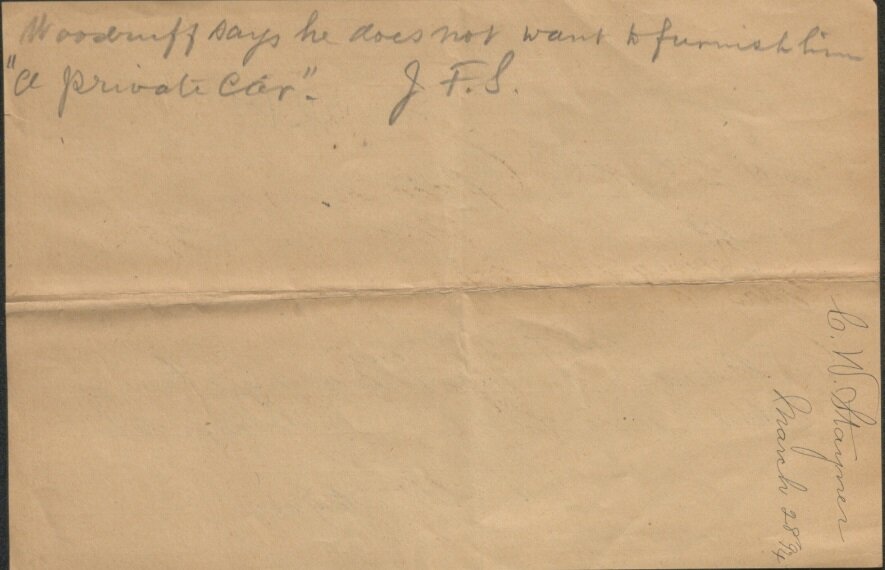 Woodruff says he does not want to furnish him
"a private Car". J. F. S.
C. W. Stayner
March 28 94